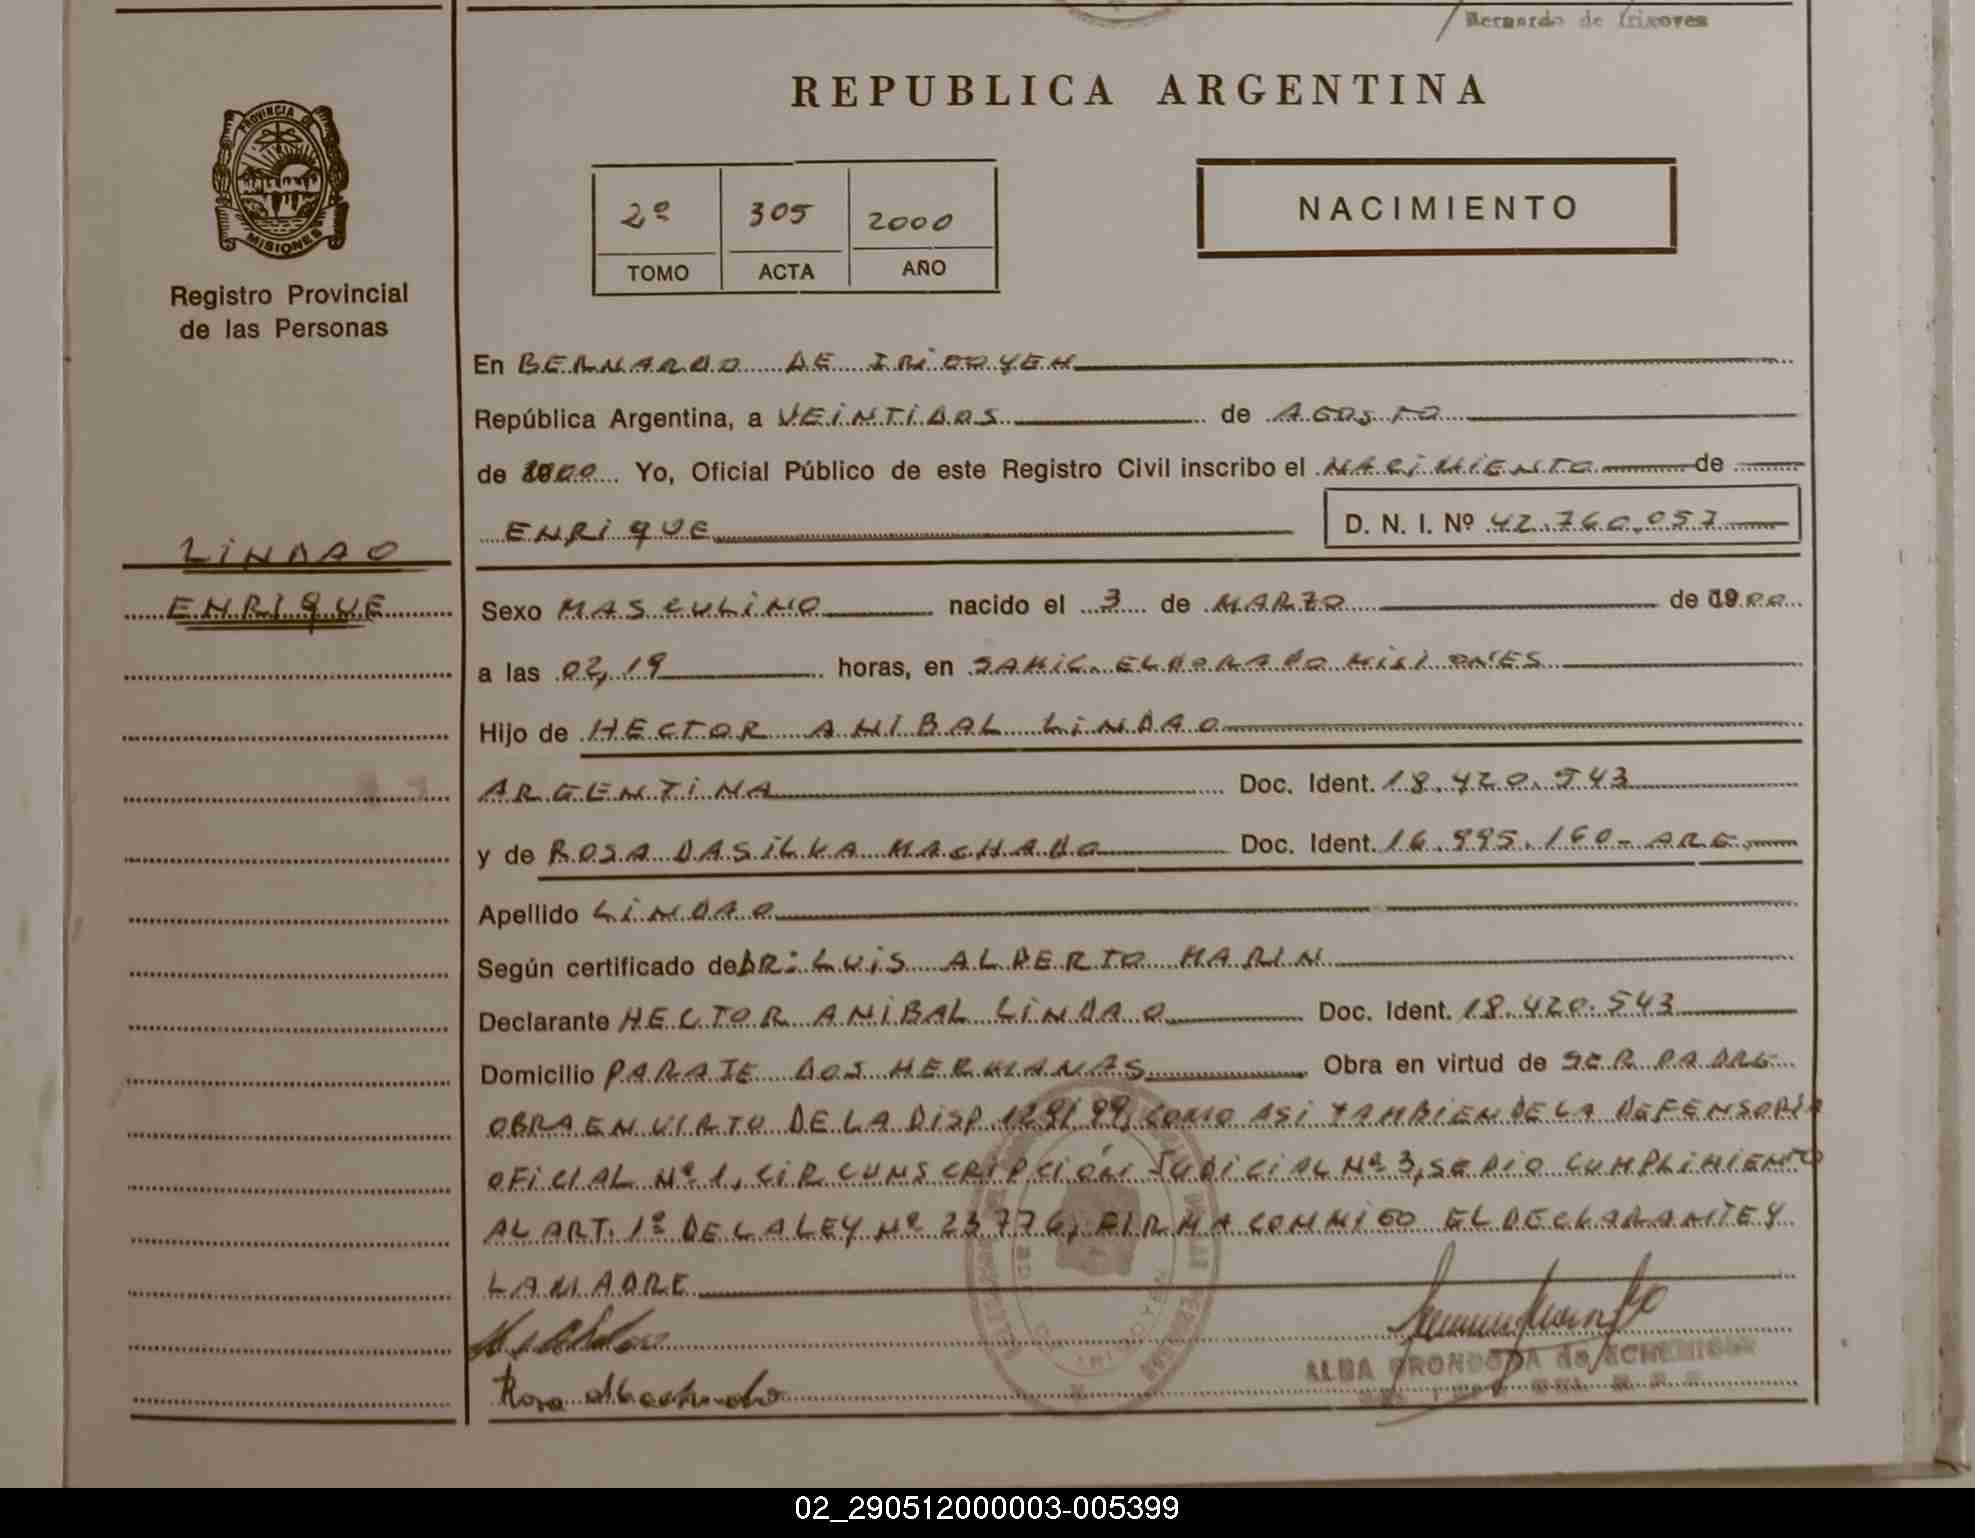 Bernardo de Irigoyen
REPUBLICA ARGENTINA
PROVINCIA DE
MISIONES
Registro Provincial
de las Personas
2º 305 2000
TOMO ACTA AÑO
NACIMIENTO
En BERNARDO DE IRIGOYEN
República Argentina, a VEINTIDOS de AGOSTO
de 2000 Yo, Oficial Público de este Registro Civil inscribo el NACIMIENTO de
ENRIQUE D. N. I. Nº 42.760.057
LINDAO
ENRIQUE
Sexo MASCULINO nacido el 3 de MARZO de 2000
a las 02,19 horas, en SAMIC. ELDORADO MISIONES
Hijo de HECTOR ANIBAL LINDAO
ARGENTINA Doc. Ident. 18.420.543
y de ROSA DASILVA MACHADO Doc. Ident. 16.995.160-ARG.
Apellido LINDAO
Según certificado de DR: LUIS ALBERTO MARIN
Declarante HECTOR ANIBAL LINDAO Doc. Ident. 18.420.543
Domicilio PARAJE DOS HERMANAS Obra en virtud de SER PADRE
OBRA EN VIRTO DE LA DISP. 129/99, COMO ASI TAMBIEN DE LA DEFENSORIA
OFICIAL Nº 1, CIRCUNSCRIPCIÓN JUDICIAL Nº 3, SE DIO CUMPLIMIENTO
AL ART. 1º DE LA LEY Nº 23776, FIRMA CONMIGO EL DECLARANTE Y
LA MADRE
Rosa Machado
ALBA
02_290512000003-005399